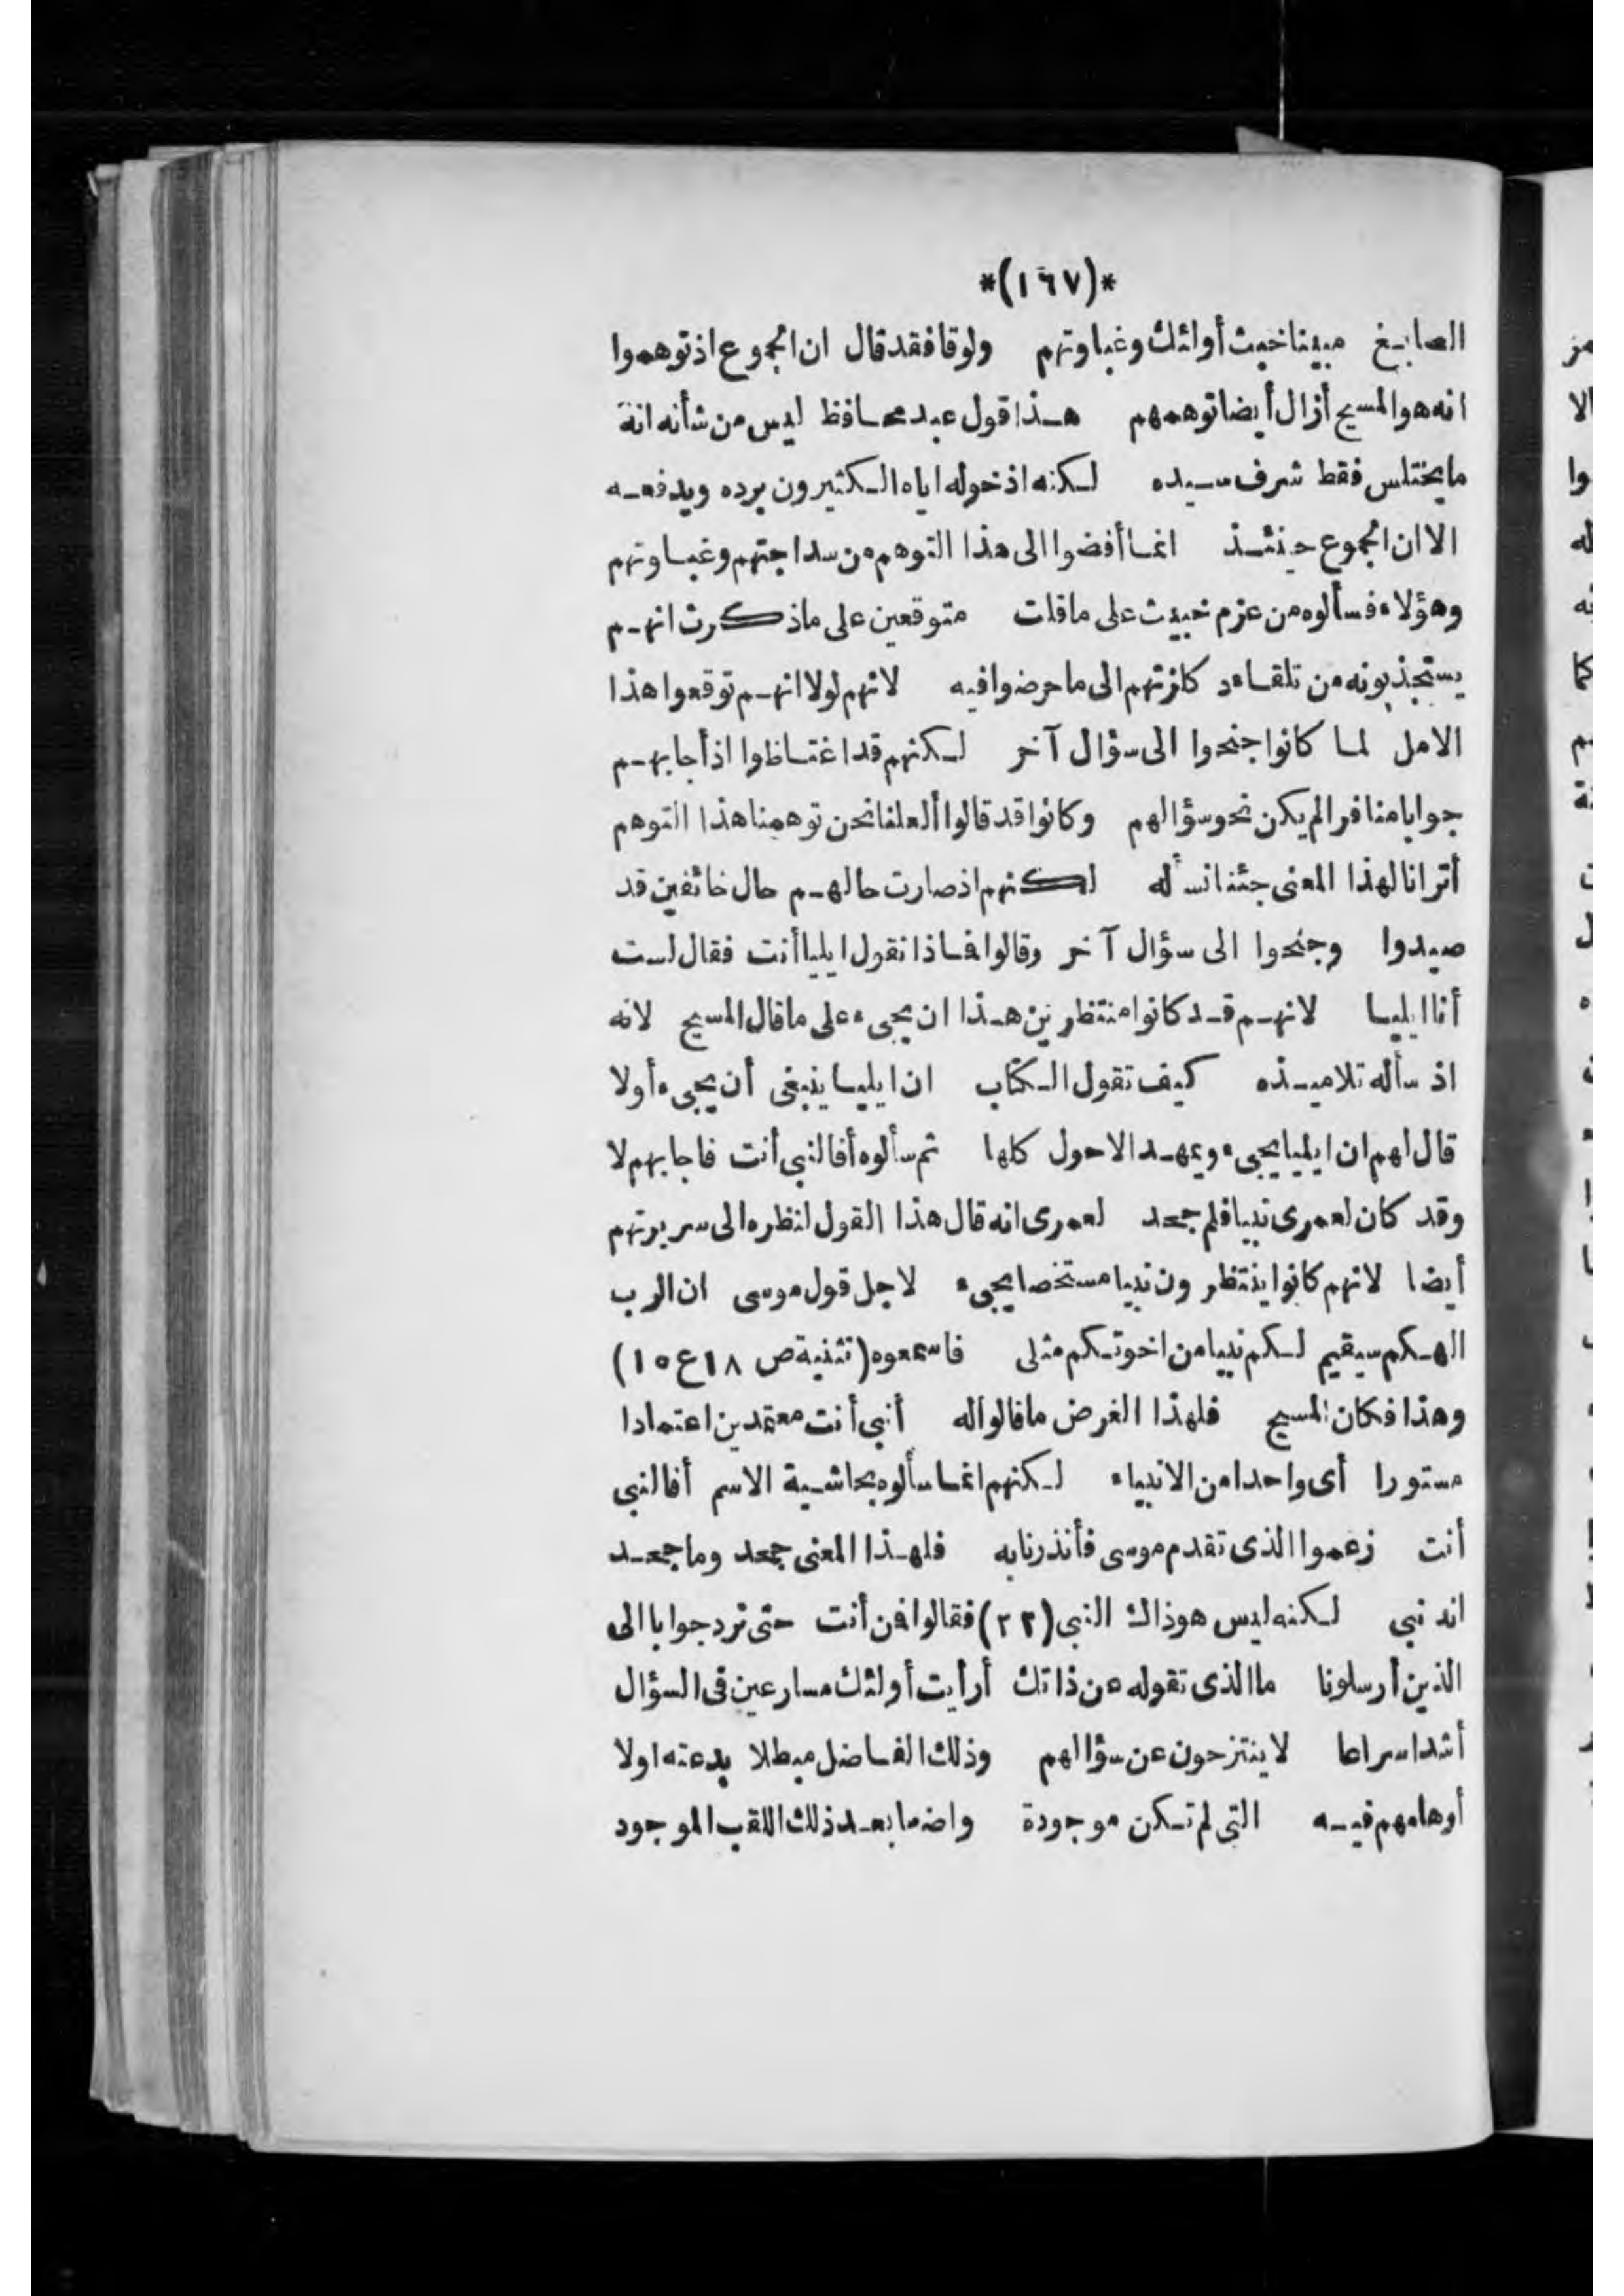 *(١٦٧)*
الصابغ مبينا خبث أولئك وغباوتهم ولوقا فقد قال ان الجموع اذ توهموا
انه هو المسيح أزال أيضا توهمهم هذا قول عبد محافظ ليس من شأنه انه
ما يختلس فقط شرف سيده لكنه اذ خوله اياه الكثيرون يرده ويدفعه
الا ان الجموع حينئذ انما أفضوا الى هذا التوهم من سداجتهم وغباوتهم
وهؤلاء فسألوه من عزم خبيث على ما قلت متوقعين على ما ذكرت انهم
يستجذبونه من تلقاء كازتهم الى ما حرضوا فيه لانهم لولا انهم توقعوا هذا
الامل لما كانوا جنحوا الى سؤال آخر لكنهم قد اغتاظوا اذ أجابهم
جوابا منافرا لم يكن نحو سؤالهم وكانوا قد قالوا ألعلنا نحن توهمنا هذا التوهم
أترانا لهذا المعنى جئنا نسأله لكنهم اذ صارت حالهم حال خائفين قد
صيدوا وجنحوا الى سؤال آخر وقالوا فماذا نقول ايليا أنت فقال لست
أنا ايليا لانهم قد كانوا منتظرين هذا ان يجىء على ما قال المسيح لانه
اذ سأله تلاميذه كيف تقول الكتاب ان ايليا ينبغى أن يجىء أولا
قال لهم ان ايليا يجىء ويمهد الاحول كلها ثم سألوه أفالنبى أنت فاجابهم لا
وقد كان لعمرى نبيا فلم جحد لعمرى انه قال هذا القول لنظره الى سريرتهم
أيضا لانهم كانوا ينتظرون نبيا مستخصا يجىء لاجل قول موسى ان الرب
الهكم سيقيم لكم نبيا من اخوتكم مثلى فاسمعوه (تثنية ص ١٨ ع ١٥)
وهذا فكان المسيح فلهذا الغرض ما قالوا له أنبى أنت معتمدين اعتمادا
مستورا أى واحدا من الانبياء لكنهم انما سألوه بحاشية الاسم أفالنبى
أنت زعموا الذى تقدم موسى فأنذرنا به فلهذا المعنى جحد وما جحد
انه نبى لكنه ليس هو ذاك النبى (٢٢) فقالوا فمن أنت حتى نرد جوابا الى
الذين أرسلونا ما الذى تقوله عن ذاتك أرأيت أولئك مسارعين فى السؤال
أشد اسراعا لا ينتزحون عن سؤالهم وذلك الفاضل مبطلا بدعته اولا
أوهامهم فيه التى لم تكن موجودة واضعا بعد ذلك اللقب الموجود